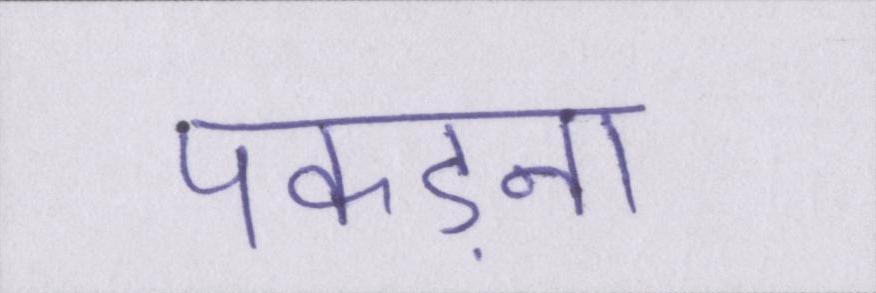 पकड़ना